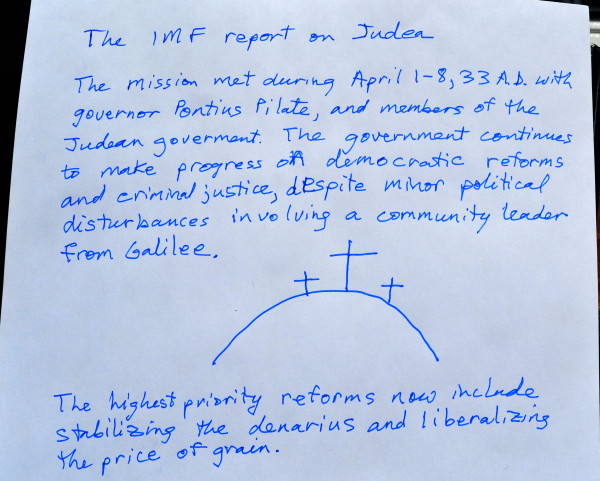 The IMF report on Judea
The mission met during April 1-8, 33 A.D. with
governor Pontius Pilate, and members of the
Judean goverment. The government continues
to make progress on democratic reforms
and criminal justice, despite minor political
disturbances involving a community leader
from Galilee.
The highest priority reforms now include
stabilizing the denarius and liberalizing
the price of grain.